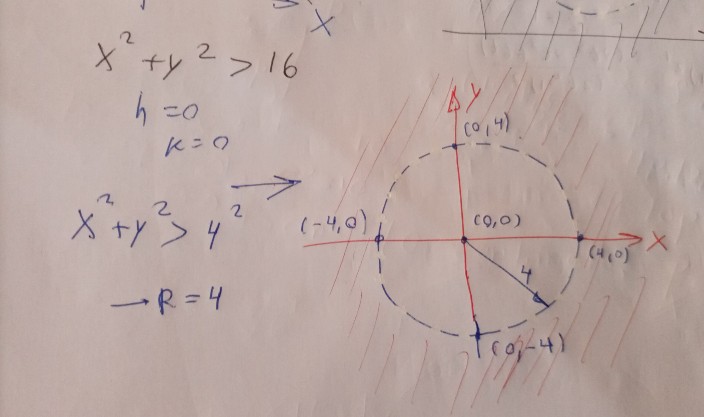 X
x² + y² > 16
h = 0
K = 0
x² + y² > 4²
→ R = 4
y
(0,4)
(-4,0)
(0,0)
X
(4,0)
4
(0,-4)